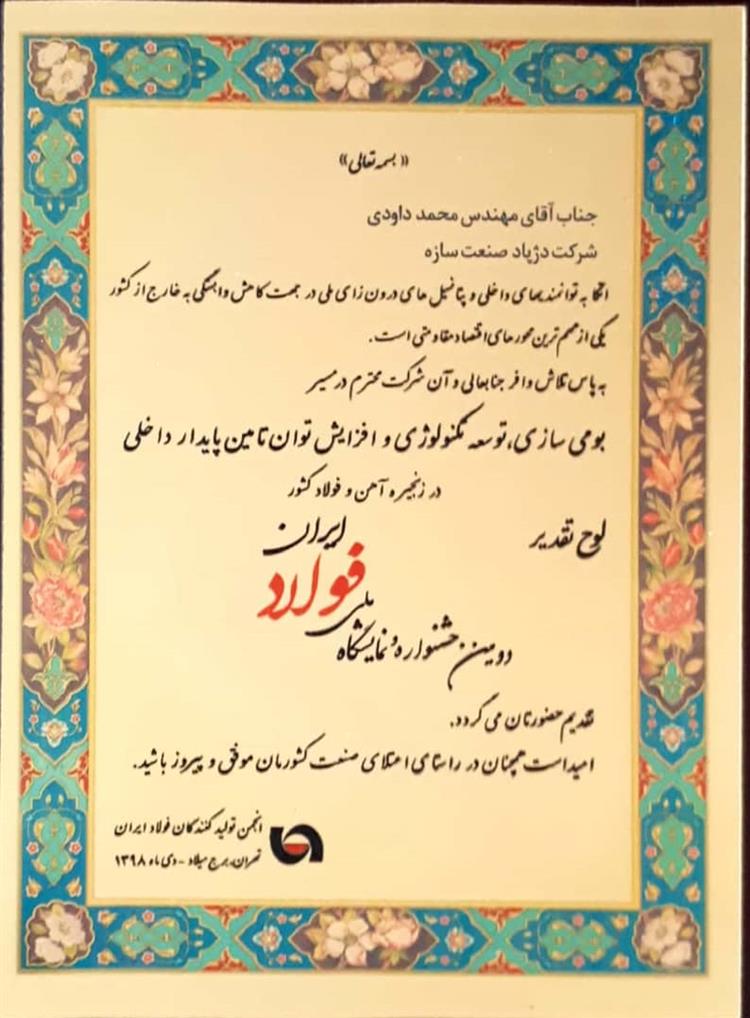 « بسمه تعالی »
جناب آقای مهندس محمد داودی
شرکت دژپاد صنعت سازه
اتکا به توانمندیهای داخلی و پتانسیل های درون زای ملی در جهت کاهش وابستگی به خارج از کشور
یکی از مهم ترین محورهای اقتصاد مقاومتی است.
به پاس تلاش وافر جنابعالی و آن شرکت محترم در مسیر
بومی سازی، توسعه تکنولوژی و افزایش توان تامین پایدار داخلی
در زنجیره آهن و فولاد کشور
لوح تقدیر
دومین جشنواره و نمایشگاه
ملی
فولاد
ایران
تقدیم حضورتان می گردد.
امیداست همچنان در راستای اعتلای صنعت کشورمان موفق و پیروز باشید.
انجمن تولید کنندگان فولاد ایران
تهران، برج میلاد - دی ماه ۱۳۹۸